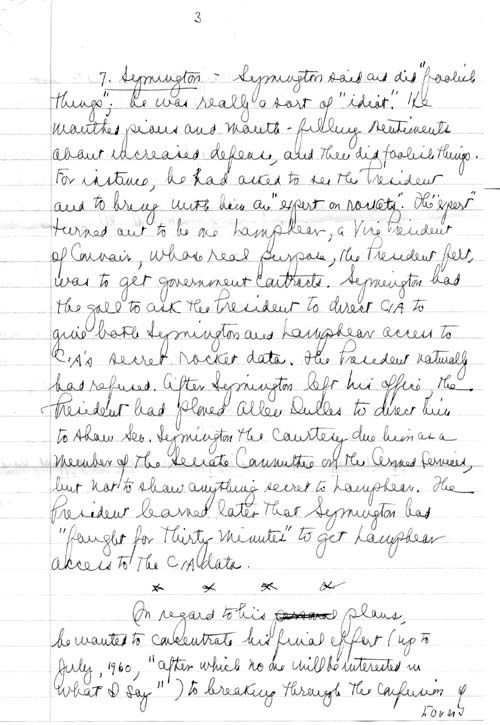 3
7. Symington - Symington said and did "foolish
things"; he was really a sort of "idiot". He
mouthed pious and mouth-filling sentiments
about increased defense, and then did foolish things.
For instance, he had asked to see the President
and to bring with him an "expert on rockets". The "expert"
turned out to be one Lamphear, a Vice President
of Convair, whose real purpose, the President felt,
was to get government contracts. Symington had
the gall to ask the President to direct CIA to
give both Symington and Lamphear access to
CIA's secret rocket data. The President naturally
had refused. After Symington left his office, the
President had phoned Allen Dulles to direct him
to show Sen. Symington the courtesy due him as a
member of the Senate Committee on the Armed Services,
but not to show anything secret to Lamphear. The
President learned later that Symington had
"fought for thirty minutes" to get Lamphear
access to the CIA data.
* * * *
In regard to his plans,
he wanted to concentrate his final effort (up to
July, 1960, "after which no one will be interested in
what I say") to breaking through the confusion of